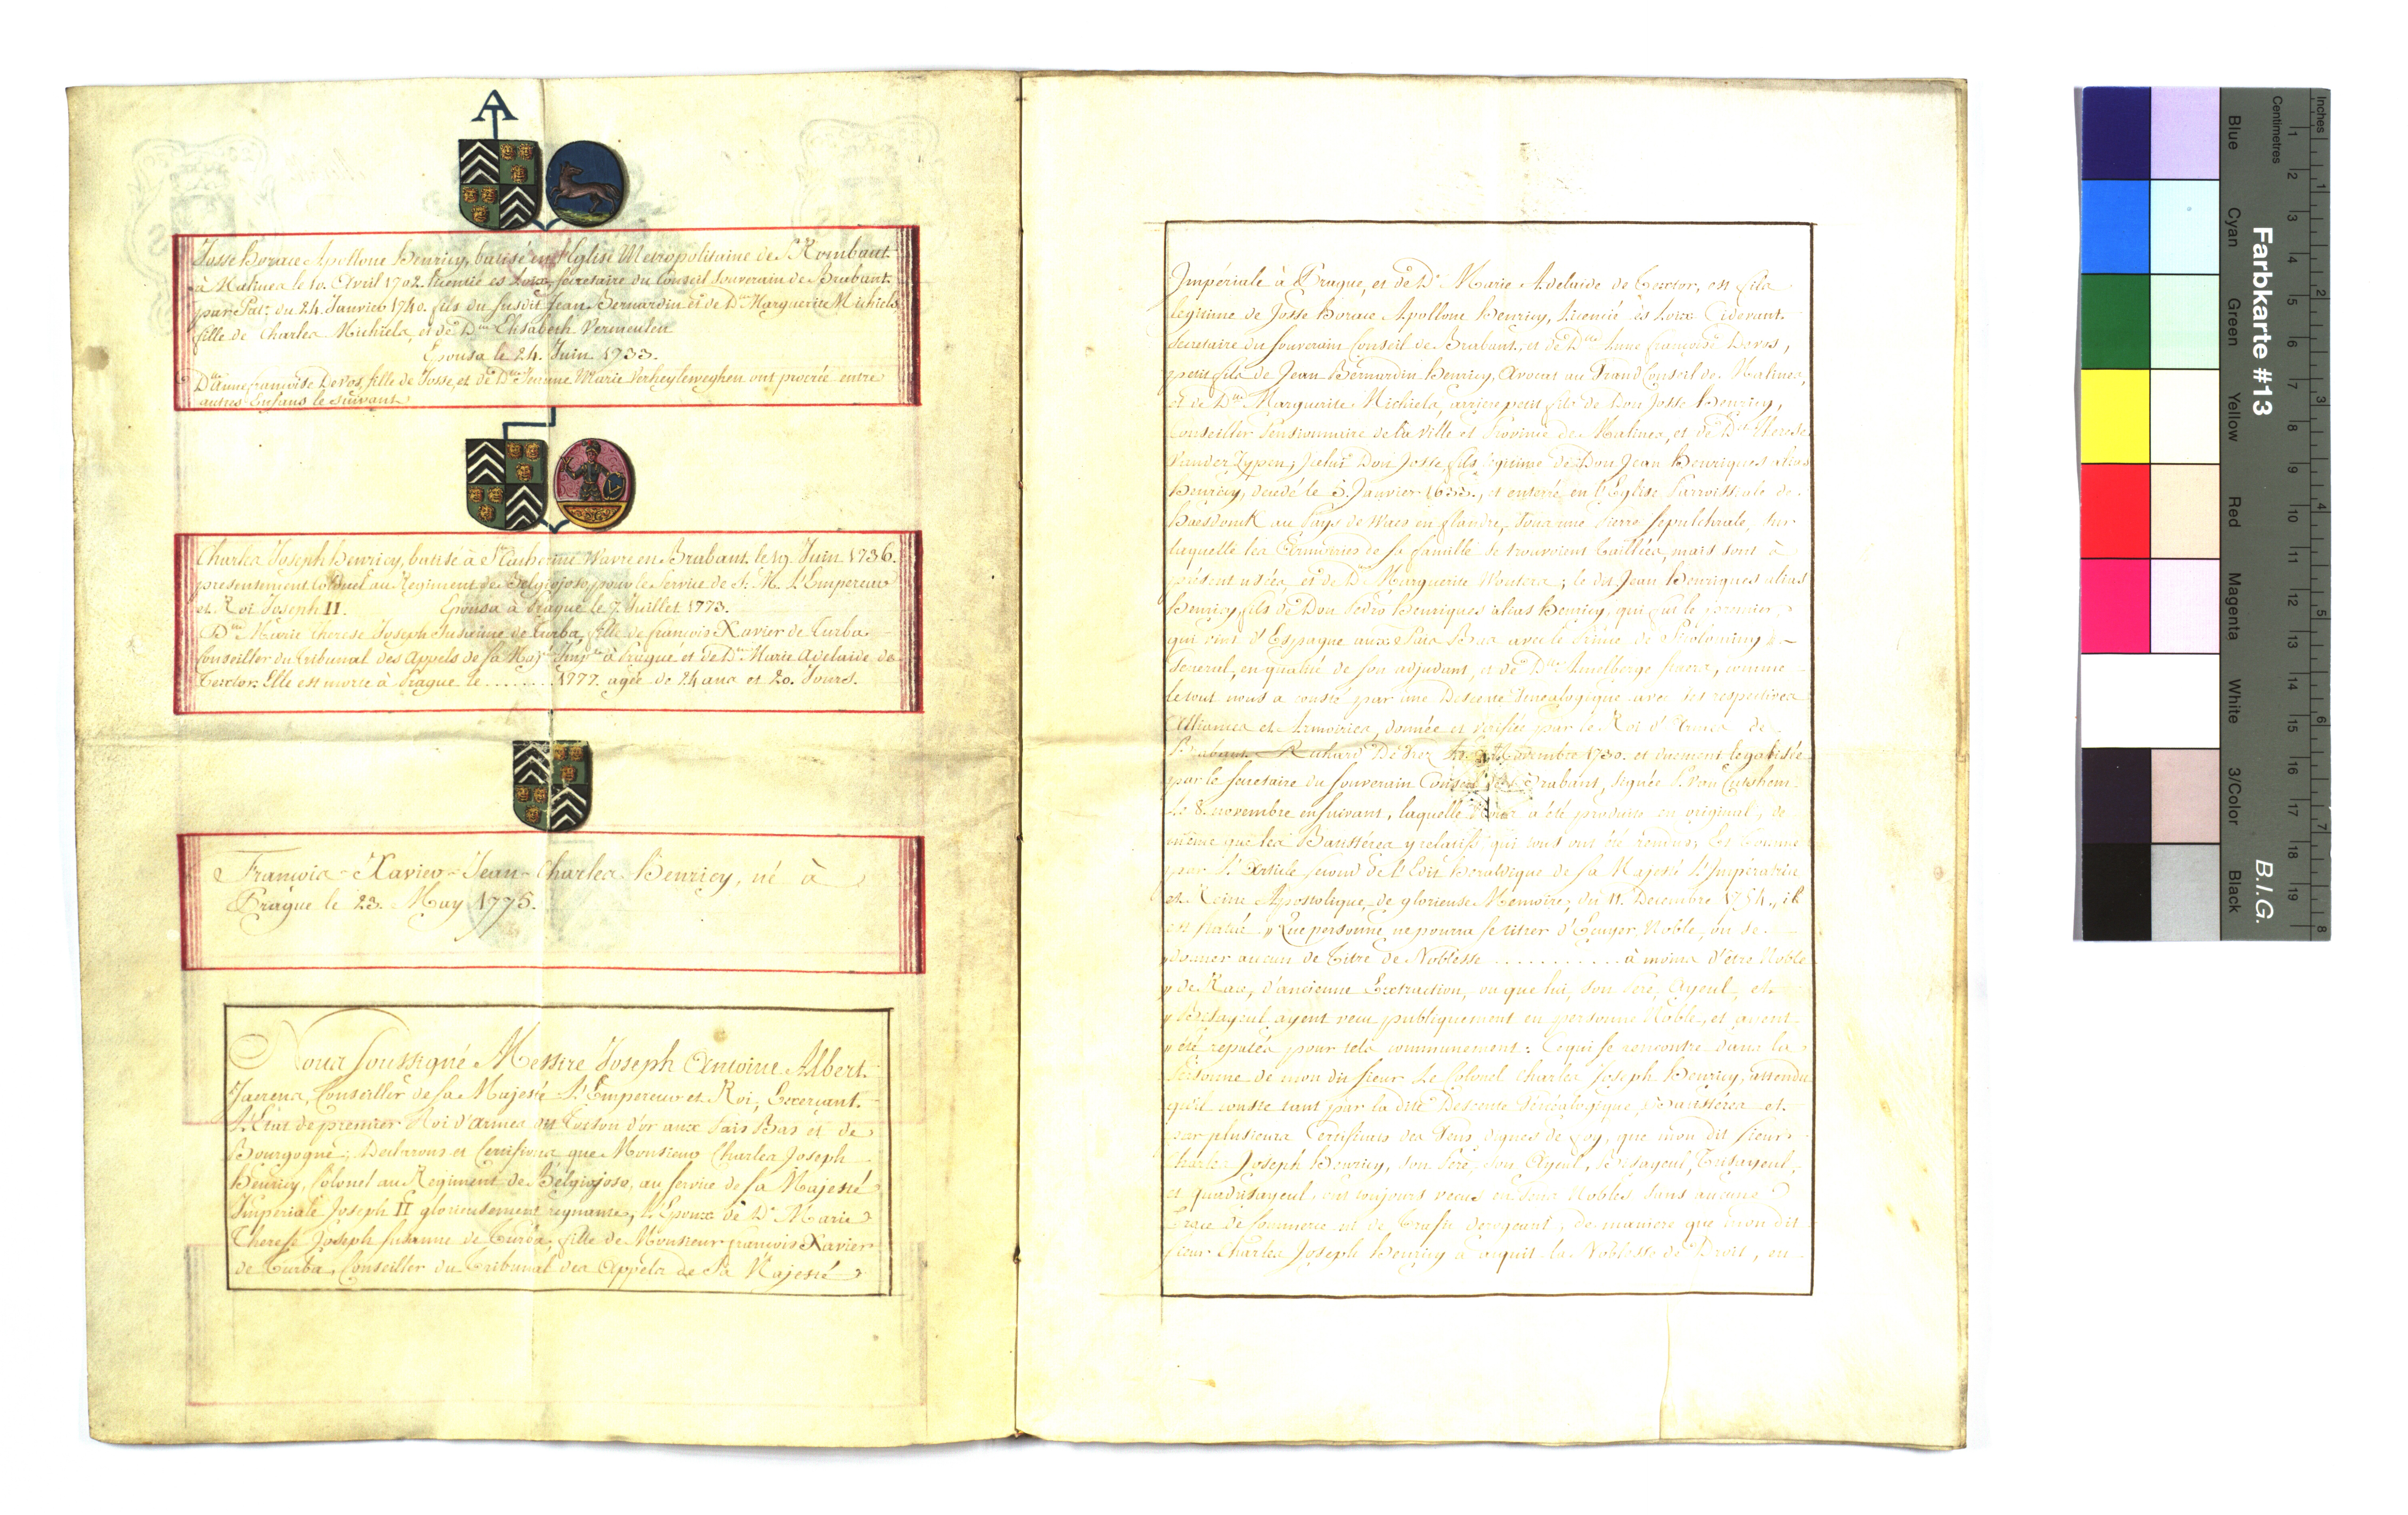 A
Josse Horace Apolloine Henricy, batisé en l'Eglise Metropolitaine de St. Rombaut
à Malines le 10. Avril 1702. licentié es Loix, secretaire du Conseil Souverain de Brabant
par Pat: du 24. Janvier 1740. fils du susdit Jean Bernardin et de Dlle Marguerite Michiels
fille de Charles Michiels, et de Dlle Elisabeth Vermeulen
Epousa le 24. Juin 1733.
Dlle Anne françoise De Vos, fille de Josse, et de Dlle Jeanne Marie Verheyleweghen ont procrée entre
autres Enfans le suivant
Charles Joseph Henricy, batisé à Ste Catherine Wavre en Brabant le 19. Juin 1736.
presentement Colonel au Regiment de Belgiojoso, pour le Service de S. M. L'Empereur
et Roi Joseph II. Epousa à Prague le 7. Juillet 1773.
Dlle Marie Therese Joseph Susanne de Turba, fille de francois Xavier de Turba,
Conseiller du Tribunal des Appels de sa Majté Imple à Prague et de De Marie Adelaide de
Texlor. Elle est morte à Prague le ........ 1777. agée de 24 ans et 20. Jours.
Francois - Xavier - Jean - Charles Henricy, né à
Prague le 23. May 1775.
Nous soussigné Messire Joseph Antoine Albert
Jaerens, Conseiller de sa Majesté L'Empereur et Roi, Exercant
L'Etat de premier Roi d'armes dit Toison d'or aux Païs Bas et de
Bourgogne; Declarons et Certifions que Monsieur Charles Joseph
Henricy, Colonel au Regiment de Belgiojoso, au service de sa Majesté
Imperiale Joseph II glorieusement regnante, L'Epoux de De Marie
Therese Joseph susanne de Turba, fille de Monsieur francois Xavier
de Turba, Conseiller du Tribunal des Appels de Sa Majesté
Impériale à Prague, et de De Marie Adelaide de Texlor, est fils
legitime de Josse Horace Apolloine Henricy, licencié ès Loix Cidevant
Secretaire du souverain Conseil de Brabant, et de Dlle Anne francoise Devos,
petit fils de Jean Bernardin Henricy, Avocat au Grand Conseil de Malines,
et de Dlle Marguerite Michiels, arriere petit fils de Don Josse Henricy,
Conseiller Pensionnaire de la Ville et Province de Malines, et de Dlle Therese
Vander Zypen; Jcelui Don Josse, fils legitime de Don Jean Henriques alias
Henricy, decedé le 3. Janvier, et enterré en l'Eglise Parroissiale de
Haesdonck au Pays de Waes en flandre, sous une Pierre sepulchrale, sur
laquelle les Armoiries de sa famille se trouvoient Tailliées, mais sont à
présent usées et de De Marguerite Wouters; le dit Jean Henriques alias
Henricy, fils de Don Pedro Henriques alias Henricy, qui fut le premier,
qui vint d'Espagne aux Païs Bas avec le Prince
General, en qualité de son adjudant, et de Dlle Amelberge, comme
le tout nous a consté par une Descente Genealogique avec ses respectives
Alliances et Armoiries, donnée et verifiée par le Roi d'Armes de
Brabant Richard De Grez Novembre 1730. et duement legalisée
par le secretaire du souverain Conseil de Brabant, signée
le 8. novembre ensuivant, laquelle nous a été produite en original, de
même que les Batistères y relatifs qui tous ont été rendus; Et Comme
par L'Article second de l'Edit Heraldique de sa Majesté L'Impératrice
et Reine Apostolique, de glorieuse Memoire, du 11. Decembre 1754., il
est statué „ Que personne ne pourra se titrer d'Ecuyer, Noble, ou se
„ donner aucun de Titre de Noblesse ........... à moins d'être Noble
„ de Race, d'ancienne Extraction, ou que lui, son Pere, Ayeul, et
„ Bisayeul ayent vecu publiquement en personne Noble, et ayent
„ été reputés pour tels communement: Ce qui se rencontre dans la
Personne de mon dit sieur Le Colonel Charles Joseph Henricy, attendu
qu'il conste tant par la dite Descente Genéalogique, Batistéres et
par plusieurs Certificats des Gens dignes de foy, que mon dit sieur
Charles Joseph Henricy, son Pere, son Ayeul, Bisayeul, Trisayeul,
et quadrisayeul, ont toujours vecus en Gens Nobles sans aucune
trace de Commerce ni de Trafic derogeant, de maniere que mon dit
sieur Charles Joseph Henricy a acquit la Noblesse de Droit, en
Farbkarte #13
B.I.G.
Blue
Cyan
Green
Yellow
Red
Magenta
White
3/Color
Black
Inches
Centimetres
1 2 3 4 5 6 7 8
1 2 3 4 5 6 7 8 9 10 11 12 13 14 15 16 17 18 19